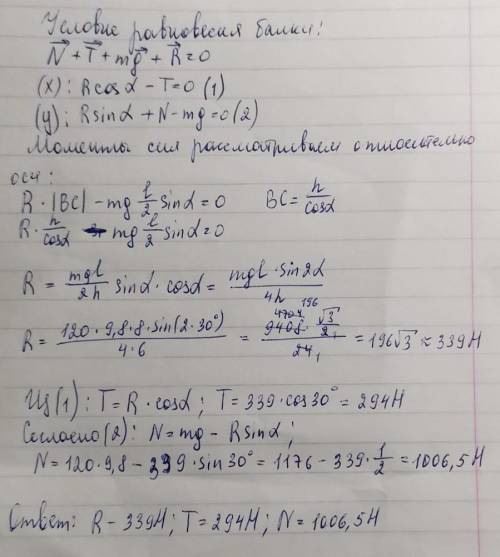 Условие равновесия балки:
N⃗ + T⃗ + mg⃗ + R⃗ = 0
(x): Rcosα - T = 0 (1)
(y): Rsinα + N - mg = 0 (2)
Моменты сил рассматриваем относительно
оси:
R · |BC| - mg l/2 sinα = 0 BC = h/cosα
R · h/cosα - mg l/2 sinα = 0
R = mgl/2h sinα · cosα = mgl · sin2α/4h
R = 120 · 9,8 · 8 · sin(2 · 30°)/4 · 6 = 9408 · √3/2/24 = 196√3 ≈ 339Н
Из (1): T = R · cosα; T = 339 · cos30° = 294Н
Согласно (2): N = mg - Rsinα;
N = 120 · 9,8 - 339 · sin30° = 1176 - 339 · 1/2 = 1006,5Н
Ответ: R - 339Н; T = 294Н; N = 1006,5Н